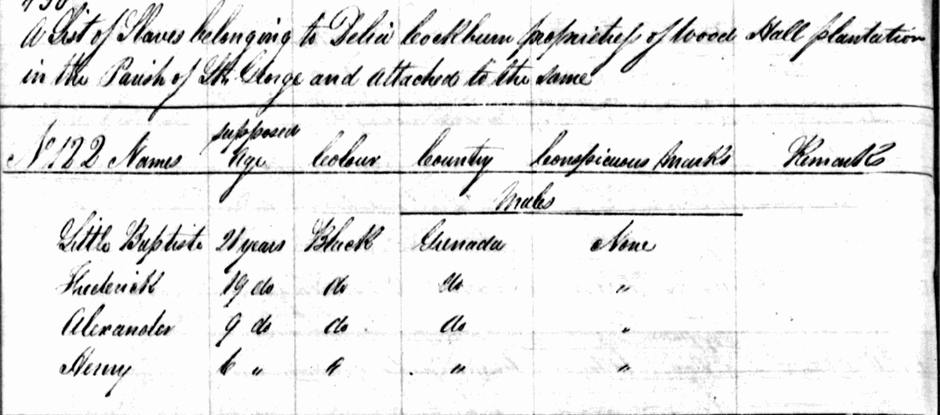 A List of Slaves belonging to Delia Cockburn proprietress of Wood Hall plantation
in the Parish of St. George and attached to the same
No. 122 Names supposed Age Colour Country Conspicuous Marks Remarks
Males
Little Baptiste 21 years Black Grenada None
Frederick 19 do do do "
Alexander 9 do do do "
Henry 6 " " " "